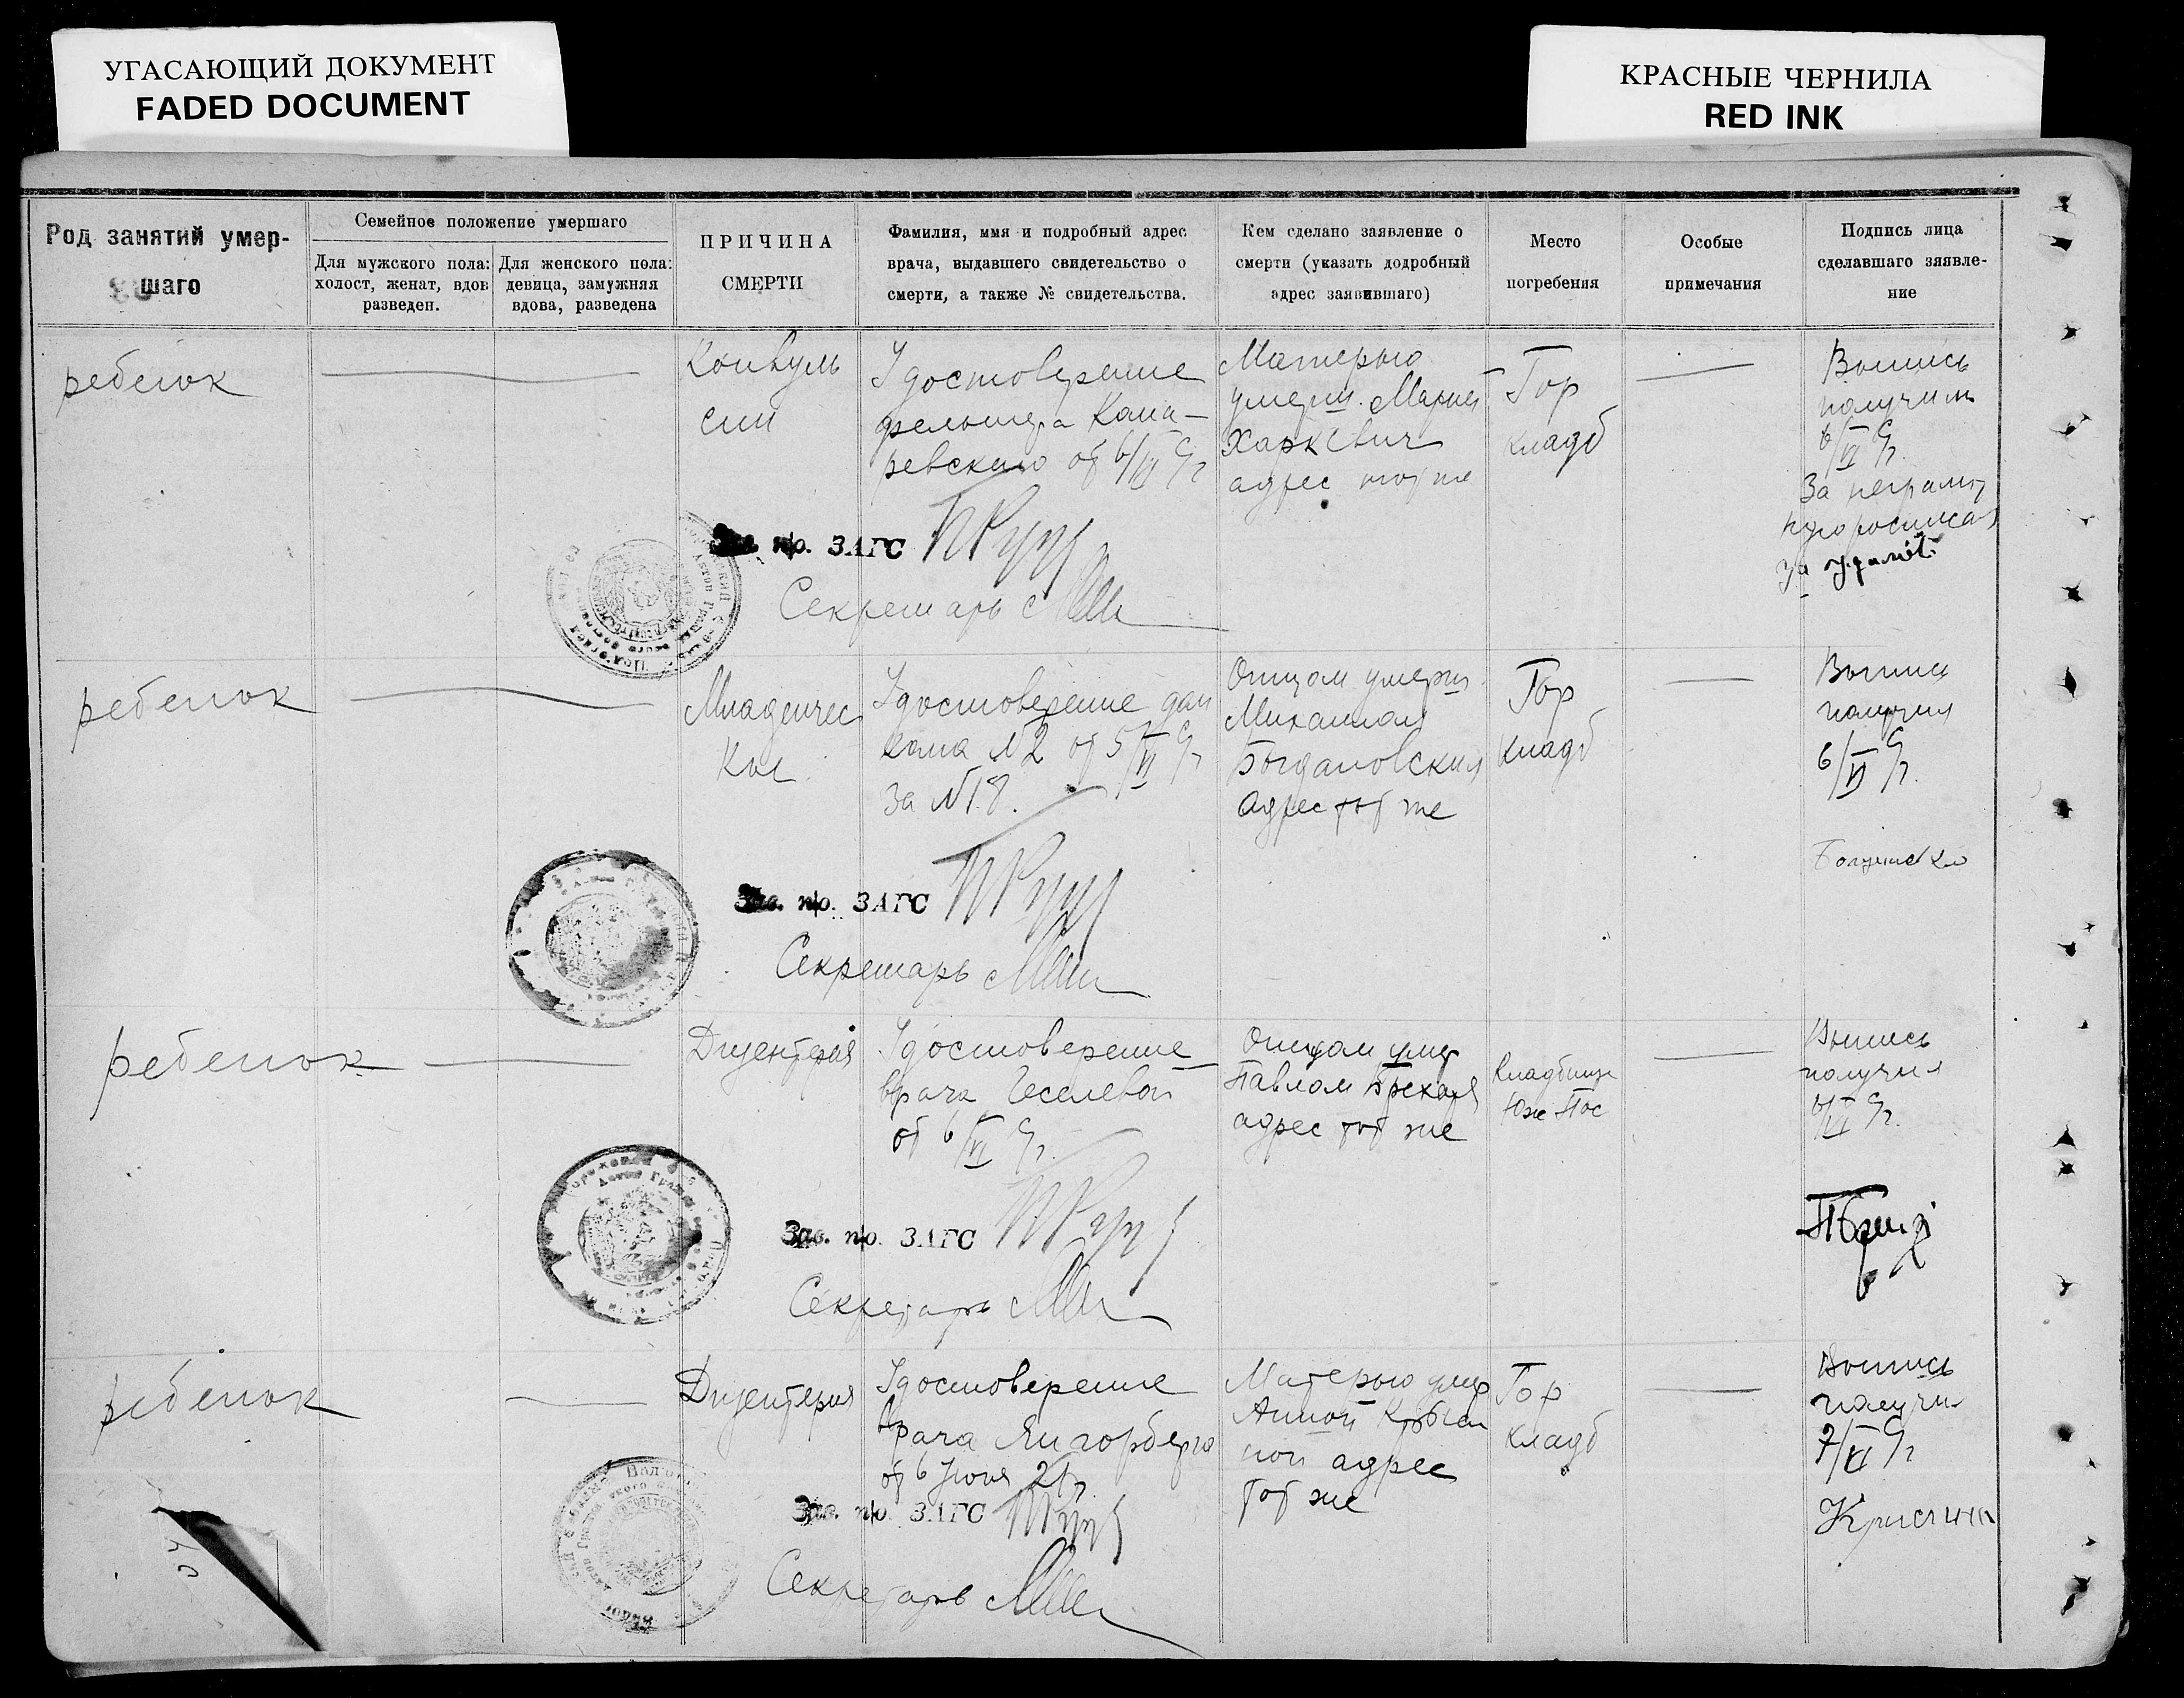 УГАСАЮЩИЙ ДОКУМЕНТ
FADED DOCUMENT
КРАСНЫЕ ЧЕРНИЛА
RED INK
Род занятий умер-
шаго
Семейное положение умершаго
Для мужского пола:
холост, женат, вдов
разведен.
Для женского пола:
девица, замужняя
вдова, разведена
ПРИЧИНА
СМЕРТИ
Фамилия, имя и подробный адрес
врача, выдавшего свидетельство о
смерти, а также № свидетельства.
Кем сделано заявление о
смерти (указать додробный
адрес заявившаго)
Место
погребения
Особые
примечания
Подпись лица
сделавшаго заявле-
ние
ребенок
Конвуль
сии
Удостоверение
фельшера Кома-
ревского от 6/VI с/г
Матерью
умерш. Марией
Харкевич
адрес тот же
Гор
кладб
Выпись
получил
6/VI с/г
За неграмот
За
п/о. ЗАГС
Секретарь
ребенок
Младенчес
кая
Удостоверение дан
кома №2 от 5/VI с/г
за №18.
Отцом умерш.
Михаилом
Богдановским
Адрес тот же
Гор
Кладб
Выпись
получил
6/VI с/г.
Зав. п/о. ЗАГС
Секретарь
ребенок
Дизентерия
Удостоверение
врача Геселевой
от 6/VI с/г.
Отцом умер
Павлом
адрес тот же
Кладбище
Юж Пос
Выпись
получил
6/VI с/г.
Зав. п/о. ЗАГС
Секретарь
ребенок
Дизентерия
Удостоверение
Врача
от 6 Июня 21г.
Матерью умер
Анной
ной адрес
тот же
Гор
кладб
Выпись
получил
7/VI с/г
Зав. п/о. ЗАГС
Секретарь